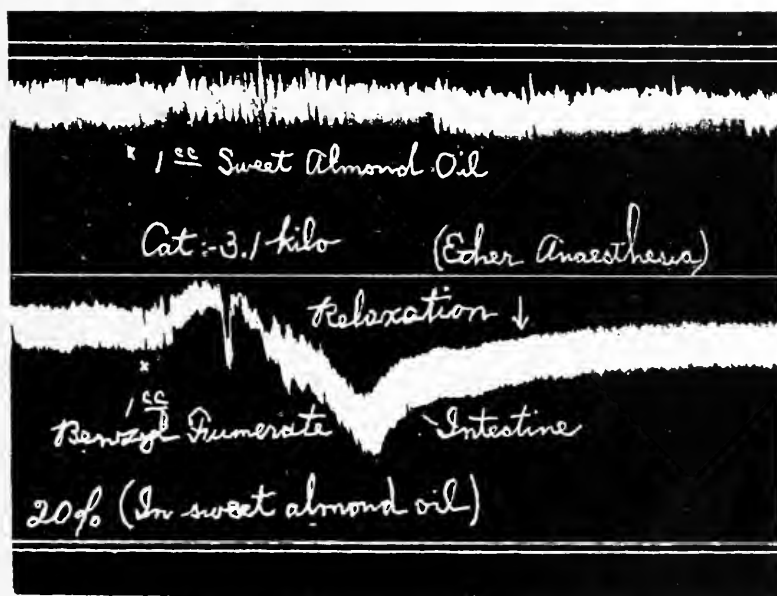 x 1 cc Sweet Almond Oil
Cat:-3.1 kilo (Ether Anaesthesia)
Relaxation ↓
x
1 cc
Benzyl Fumerate Intestine
20% (In sweet almond oil)